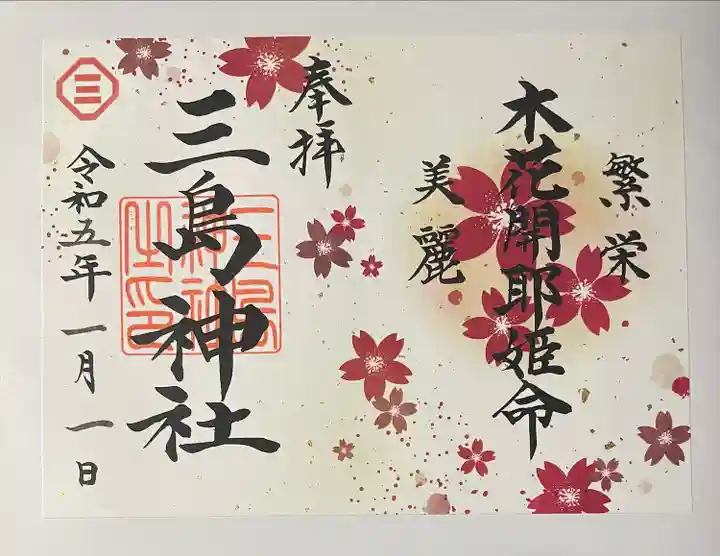 繁栄
木花開耶姫命
美麗
奉拝
三島神社
三
令和五年一月一日